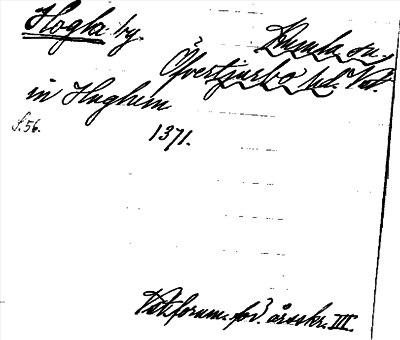 Hogla by. Runsten sn
Övertjurbo hd. Vst.
in Hughem
s. 56. 1371.
Vst. fornm. för. årsskr. III.